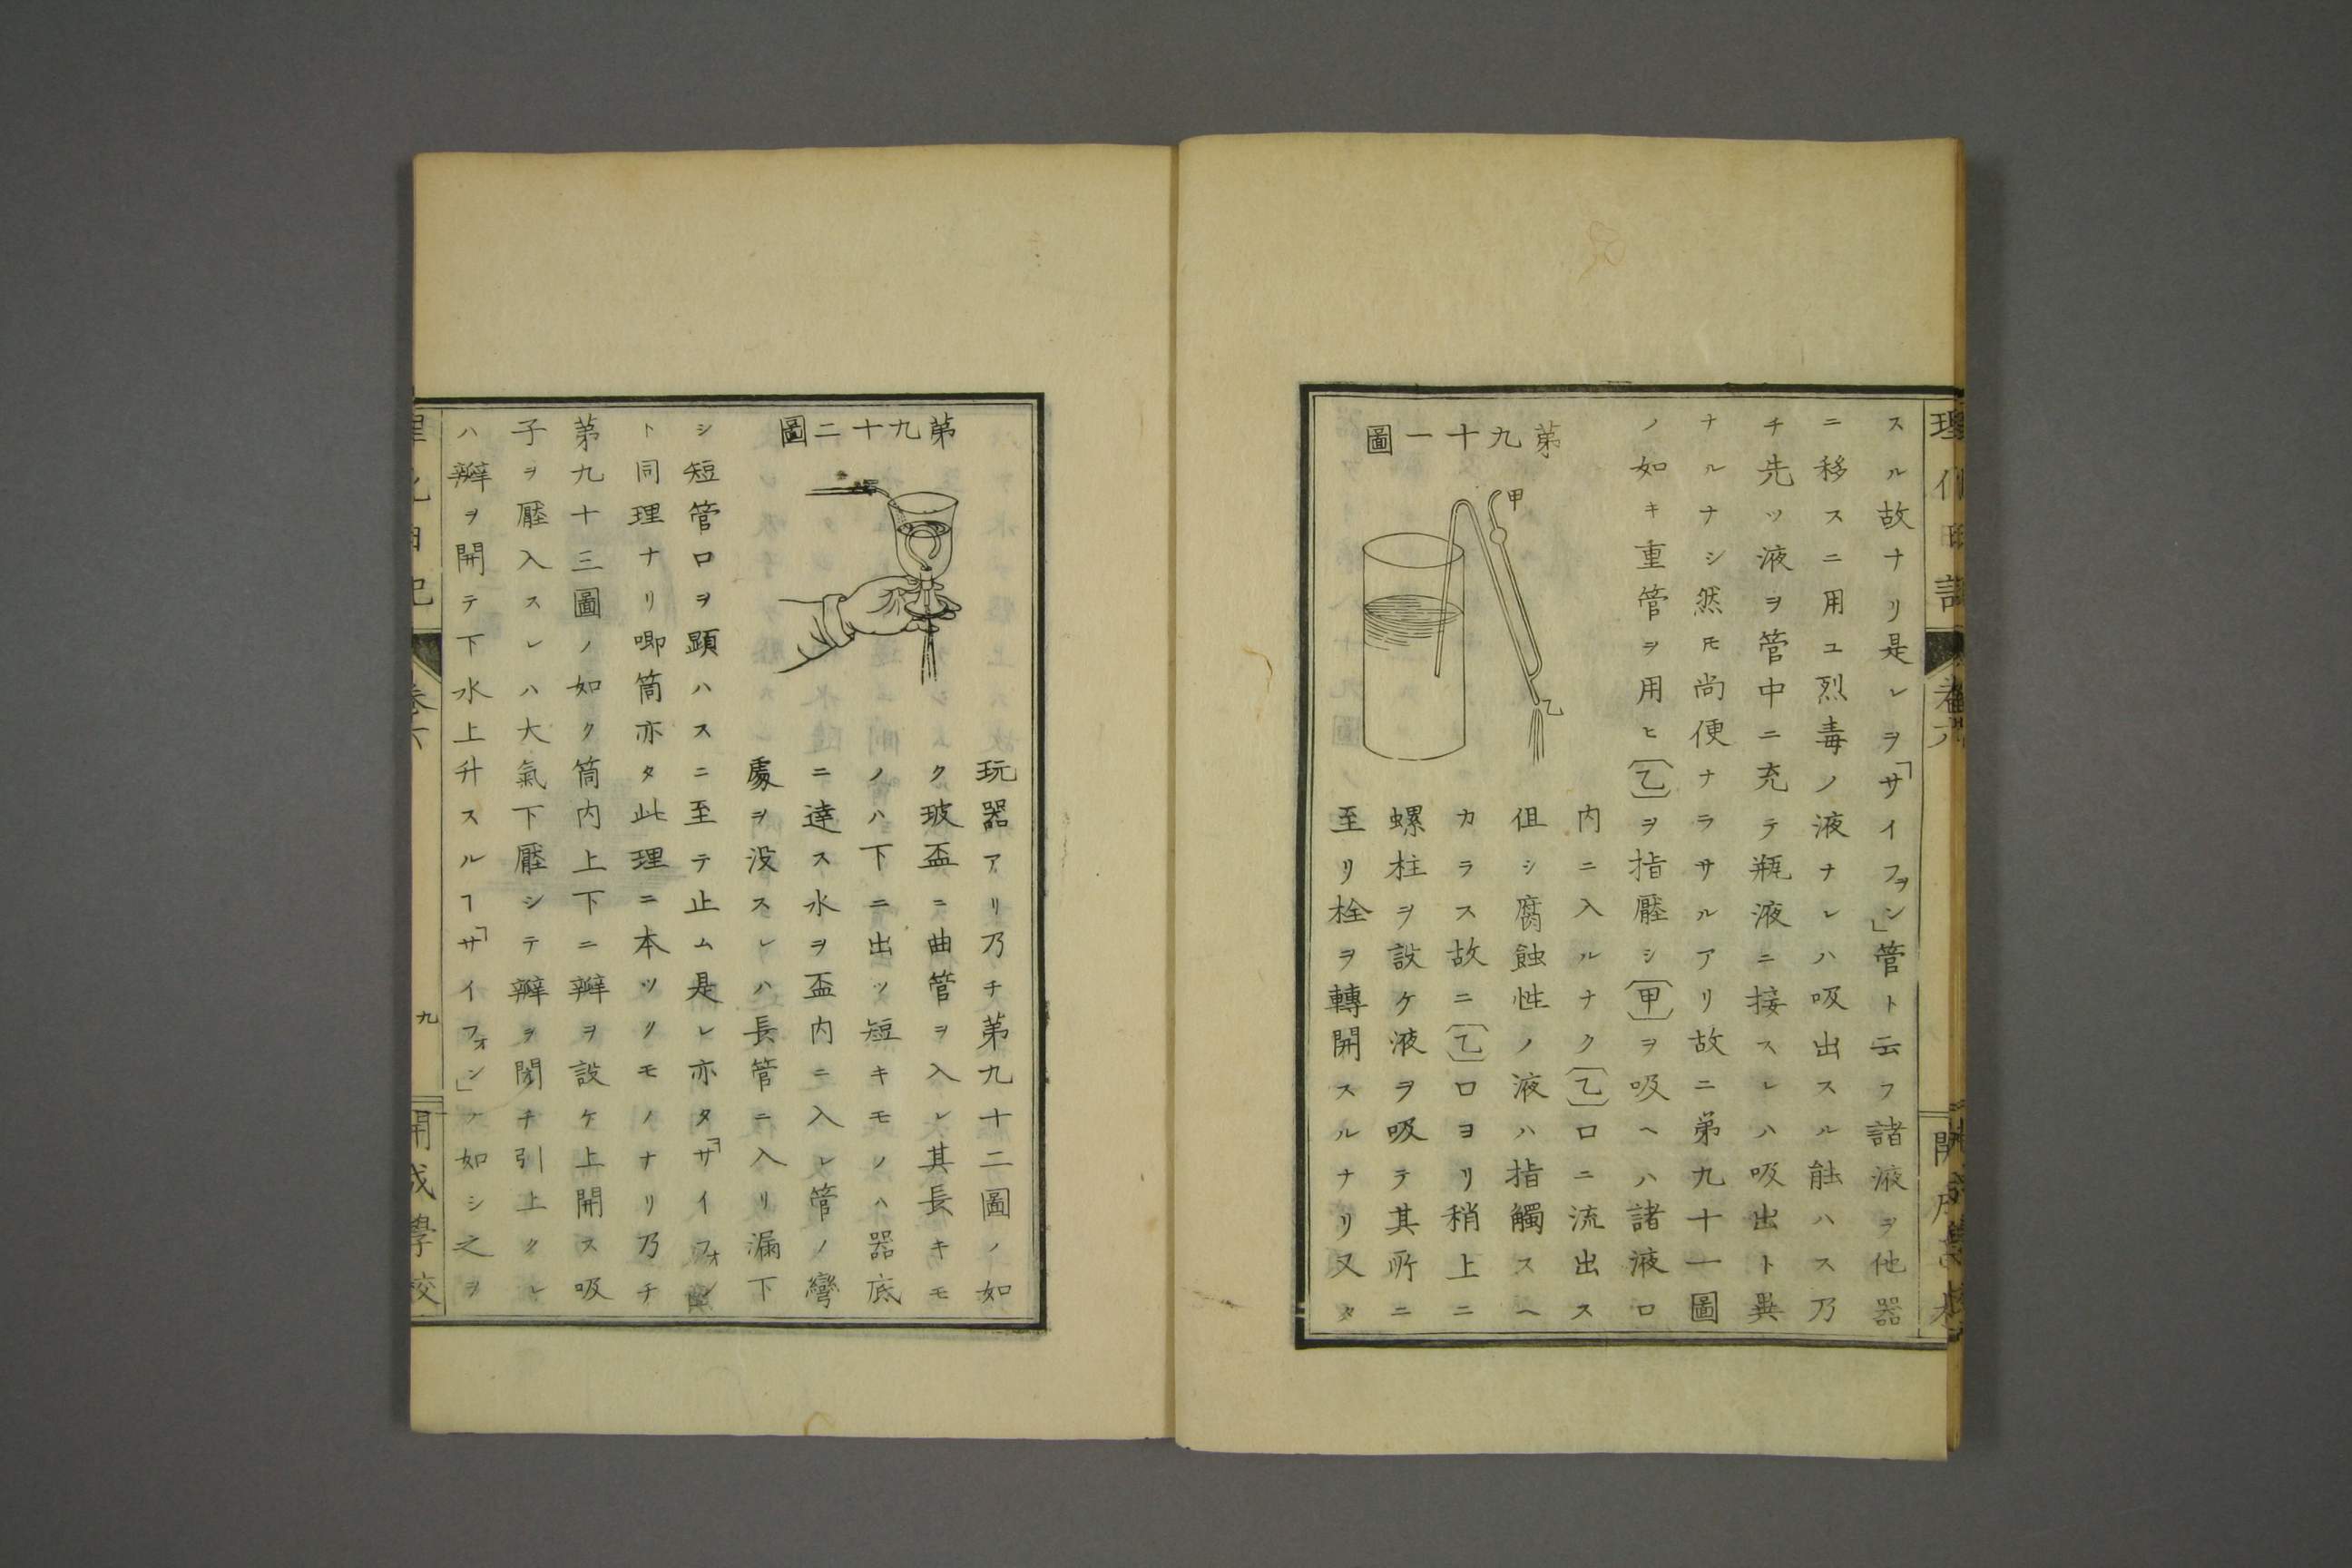 スル故ナリ是レヲ「サイフヲン」管ト云フ諸液ヲ他器
ニ移スニ用ユ烈毒ノ液ナレハ吸出スル能ハス乃
チ先ツ液ヲ管中ニ充テ瓶液ニ接スレハ吸出ト異
ナルナシ然𪜈尚便ナラサルアリ故ニ第九十一圖
ノ如キ重管ヲ用ヒ〔乙〕ヲ指壓シ〔甲〕ヲ吸ヘハ諸液口
内ニ入ルナク〔乙〕口ニ流出ス
但シ腐蝕性ノ液ハ指觸スヘ
カラス故ニ〔乙〕口ヨリ稍上ニ
螺柱ヲ設ケ液ヲ吸テ其所ニ
至リ栓ヲ轉開スルナリ又タ
第九十一圖
甲
乙
玩器アリ乃チ第九十二圖ノ如
ク玻盃ニ曲管ヲ入レ其長キモ
ノハ下ニ出ツ短キモノハ器底
ニ達ス水ヲ盃内ニ入レ管ノ彎
處ヲ没スレハ長管ニ入リ漏下
第九十二圖
シ短管口ヲ顕ハスニ至テ止ム是レ亦タ「サイフォン」
ト同理ナリ喞筒亦タ此理ニ本ツクモノナリ乃チ
第九十三圖ノ如ク筒内上下ニ辯ヲ設ケ上開ス吸
子ヲ壓入スレハ大氣下壓シテ辯ヲ閉チ引上クレ
ハ辯ヲ開テ下水上升スルヿ「サイフォン」ノ如シ之ヲ
九
開成學校